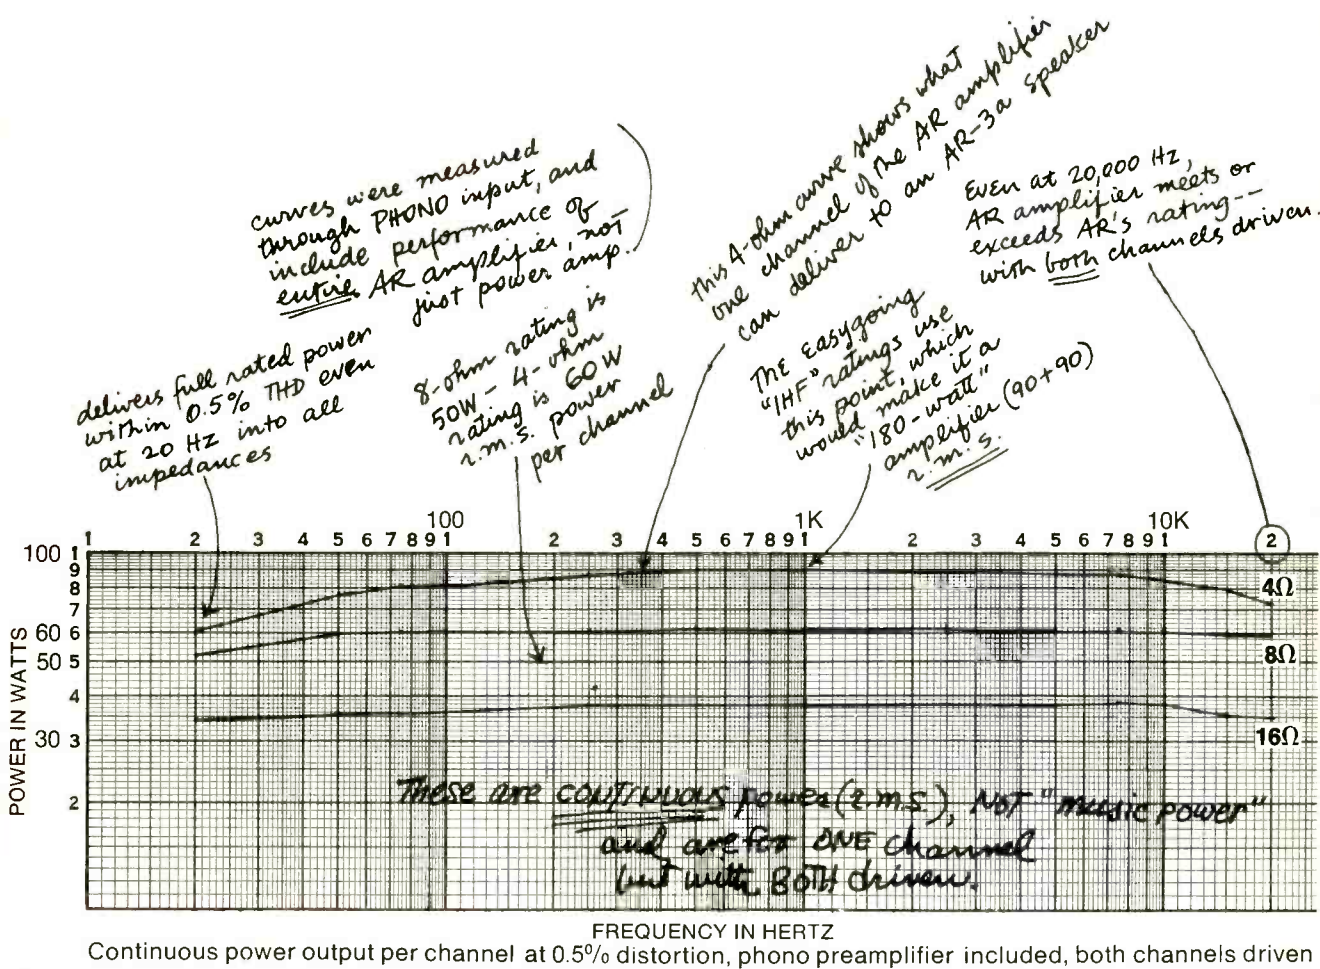 curves were measured
through PHONO input, and
include performance of
entire AR amplifier, not
just power amp.
delivers full rated power
within 0.5% THD even
at 20 Hz into all
impedances
8-ohm rating is
50W - 4-ohm
rating is 60W
r.m.s. power
per channel
this 4-ohm curve shows what
one channel of the AR amplifier
can deliver to an AR-3a speaker
THE easygoing
"IHF" ratings use
this point, which
would make it a
"180-watt"
amplifier (90+90)
r.m.s.
Even at 20,000 Hz,
AR amplifier meets or
exceeds AR's rating--
with both channels driven.
100 1K 10K
1 2 3 4 5 6 7 8 9 1 2 3 4 5 6 7 8 9 1 2 3 4 5 6 7 8 9 1 2
100 1
9
8
7
60 6
50 5
4
30 3
2
POWER IN WATTS
4Ω
8Ω
16Ω
These are continuous power (r.m.s.), NOT "music power"
and are for ONE channel
but with BOTH driven.
FREQUENCY IN HERTZ
Continuous power output per channel at 0.5% distortion, phono preamplifier included, both channels driven